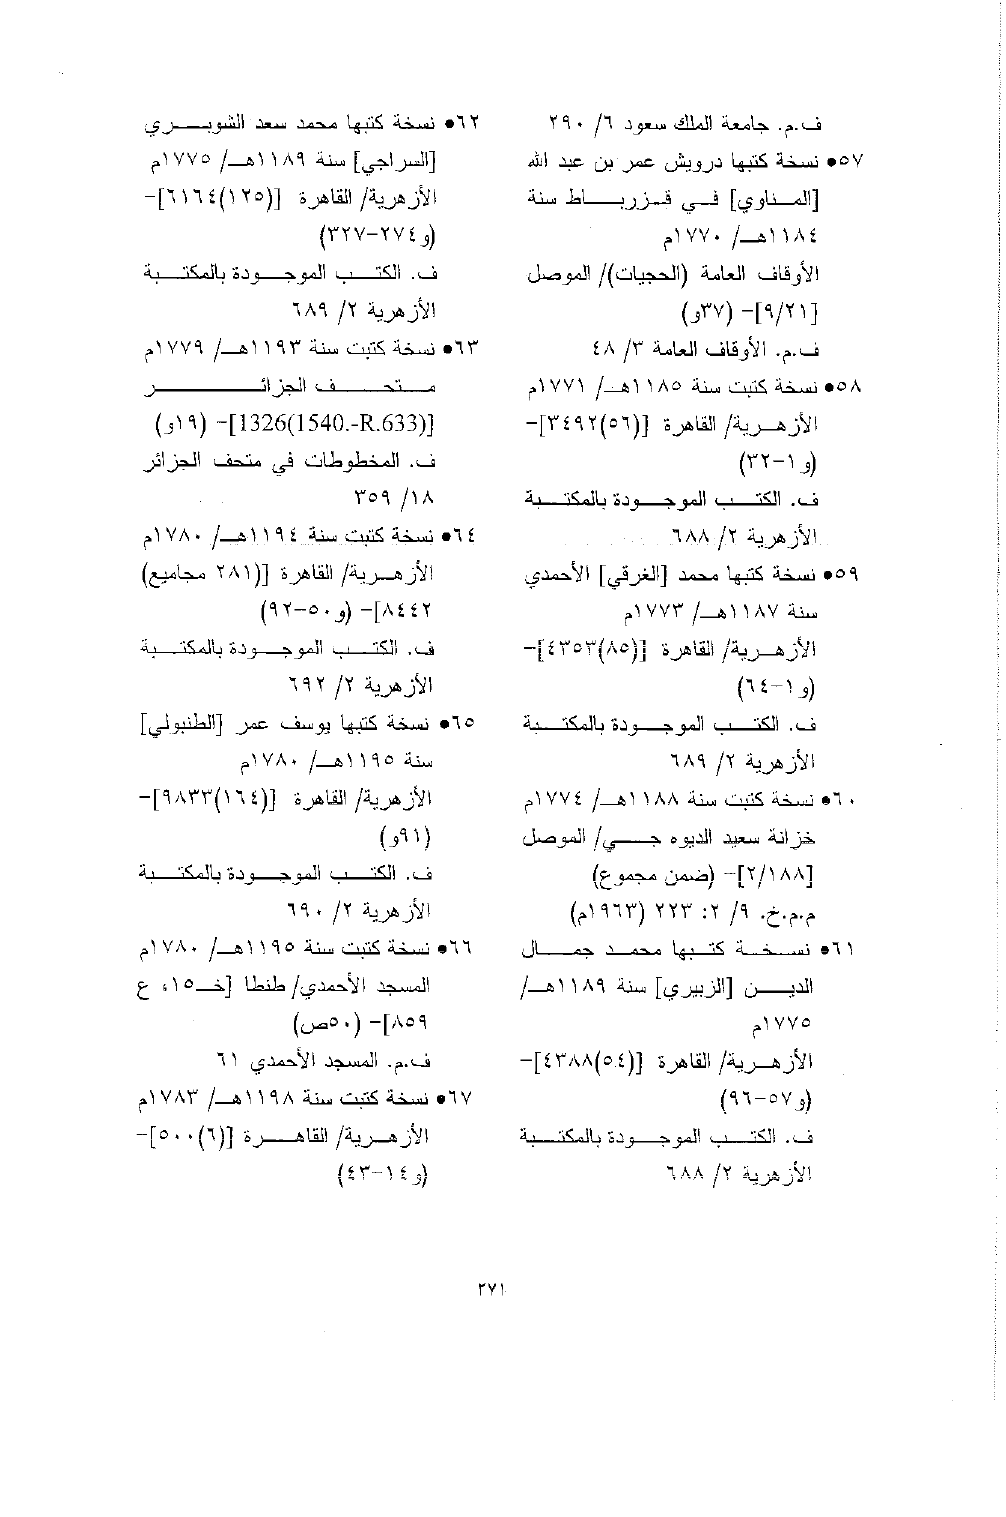 ف.م. جامعة الملك سعود ٦/ ٢٩٠
٥٧● نسخة كتبها درويش عمر بن عبد الله
[المناوي] في قزرباط سنة
١١٨٤هـ/ ١٧٧٠م
الأوقاف العامة (الحجيات)/ الموصل
[٩/٢١]- (٣٧و)
ف.م. الأوقاف العامة ٣/ ٤٨
٥٨● نسخة كتبت سنة ١١٨٥هـ/ ١٧٧١م
الأزهرية/ القاهرة [(٥٦)٣٤٩٢]-
(و١-٣٢)
ف. الكتب الموجودة بالمكتبة
الأزهرية ٢/ ٦٨٨
٥٩● نسخة كتبها محمد [الغرقي] الأحمدي
سنة ١١٨٧هـ/ ١٧٧٣م
الأزهرية/ القاهرة [(٨٥)٤٣٥٣]-
(و١-٦٤)
ف. الكتب الموجودة بالمكتبة
الأزهرية ٢/ ٦٨٩
٦٠● نسخة كتبت سنة ١١٨٨هـ/ ١٧٧٤م
خزانة سعيد الديوه جي/ الموصل
[٢/١٨٨]- (ضمن مجموع)
م.م.خ. ٩/ ٢: ٢٢٣ (١٩٦٣م)
٦١● نسخة كتبها محمد جمال
الدين [الزبيري] سنة ١١٨٩هـ/
١٧٧٥م
الأزهرية/ القاهرة [(٥٤)٤٣٨٨]-
(و٥٧-٩٦)
ف. الكتب الموجودة بالمكتبة
الأزهرية ٢/ ٦٨٨
٦٢● نسخة كتبها محمد سعد الشوبري
[السراجي] سنة ١١٨٩هـ/ ١٧٧٥م
الأزهرية/ القاهرة [(١٢٥)٦١٦٤]-
(و٢٧٤-٣٢٧)
ف. الكتب الموجودة بالمكتبة
الأزهرية ٢/ ٦٨٩
٦٣● نسخة كتبت سنة ١١٩٣هـ/ ١٧٧٩م
متحف الجزائر
[1326(1540.-R.633)]- (١٩و)
ف. المخطوطات في متحف الجزائر
١٨/ ٣٥٩
٦٤● نسخة كتبت سنة ١١٩٤هـ/ ١٧٨٠م
الأزهرية/ القاهرة [(٢٨١ مجاميع)
٨٤٤٢]- (و٥٠-٩٢)
ف. الكتب الموجودة بالمكتبة
الأزهرية ٢/ ٦٩٢
٦٥● نسخة كتبها يوسف عمر [الطنبولي]
سنة ١١٩٥هـ/ ١٧٨٠م
الأزهرية/ القاهرة [(١٦٤)٩٨٣٣]-
(٩١و)
ف. الكتب الموجودة بالمكتبة
الأزهرية ٢/ ٦٩٠
٦٦● نسخة كتبت سنة ١١٩٥هـ/ ١٧٨٠م
المسجد الأحمدي/ طنطا [خـ١٥، ع
٨٥٩]- (٥٠ص)
ف.م. المسجد الأحمدي ٦١
٦٧● نسخة كتبت سنة ١١٩٨هـ/ ١٧٨٣م
الأزهرية/ القاهرة [(٦)٥٠٠]-
(و١٤-٤٣)
٢٧١